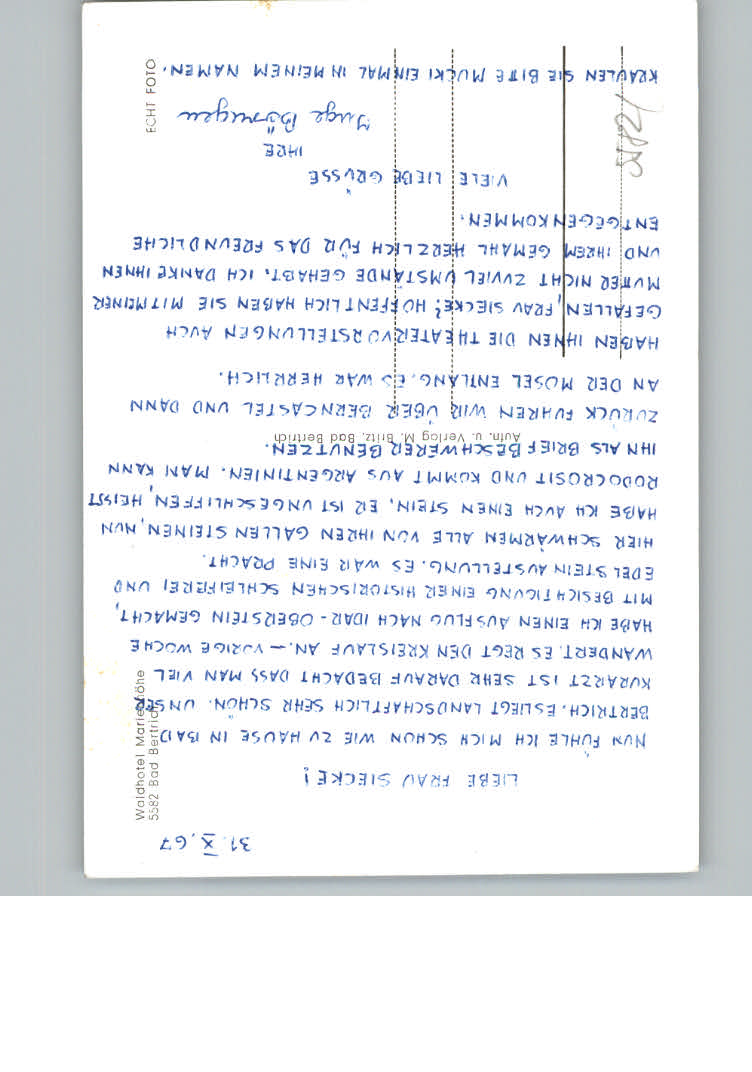 31.X.67
LIEBE FRAU SIECKE!
NUN FÜHLE ICH MICH SCHON WIE ZU HAUSE IN BAD
BERTRICH. ES LIEGT LANDSCHAFTLICH SEHR SCHÖN. UNSER
KURARZT IST SEHR DARAUF BEDACHT DASS MAN VIEL
WANDERT. ES REGT DEN KREISLAUF AN. — VORIGE WOCHE
HABE ICH EINEN AUSFLUG NACH IDAR-OBERSTEIN GEMACHT,
MIT BESICHTIGUNG EINER HISTORISCHEN SCHLEIFEREI UND
EDELSTEIN AUSTELLUNG. ES WAR EINE PRACHT.
HIER SCHWÄRMEN ALLE VON IHREN GALLEN STEINEN, NUN
HABE ICH AUCH EINEN STEIN, ER IST UNGESCHLIFFEN, HEISST
RODOCROSIT UND KOMMT AUS ARGENTINIEN. MAN KANN
IHN ALS BRIEF BESCHWERER BENUTZEN.
ZURÜCK FUHREN WIR ÜBER BERNCASTEL UND DANN
AN DER MOSEL ENTLANG. ES WAR HERRLICH.
HABEN IHNEN DIE THEATERVORSTELLUNGEN AUCH
GEFALLEN, FRAU SIECKE? HOFFENTLICH HABEN SIE MIT MEINER
MUTTER NICHT ZUVIEL UMSTÄNDE GEHABT. ICH DANKE IHNEN
UND IHREM GEMAHL HERZLICH FÜR DAS FREUNDLICHE
ENTGEGENKOMMEN.
VIELE LIEBE GRÜSSE
IHRE
Inge
KRAULEN SIE BITTE MUCKI EINMAL IN MEINEM NAMEN.
Waldhotel Marienhöhe
5582 Bad Bertrich
Aufn. u. Verlag M. Britz, Bad Bertrich
ECHT FOTO